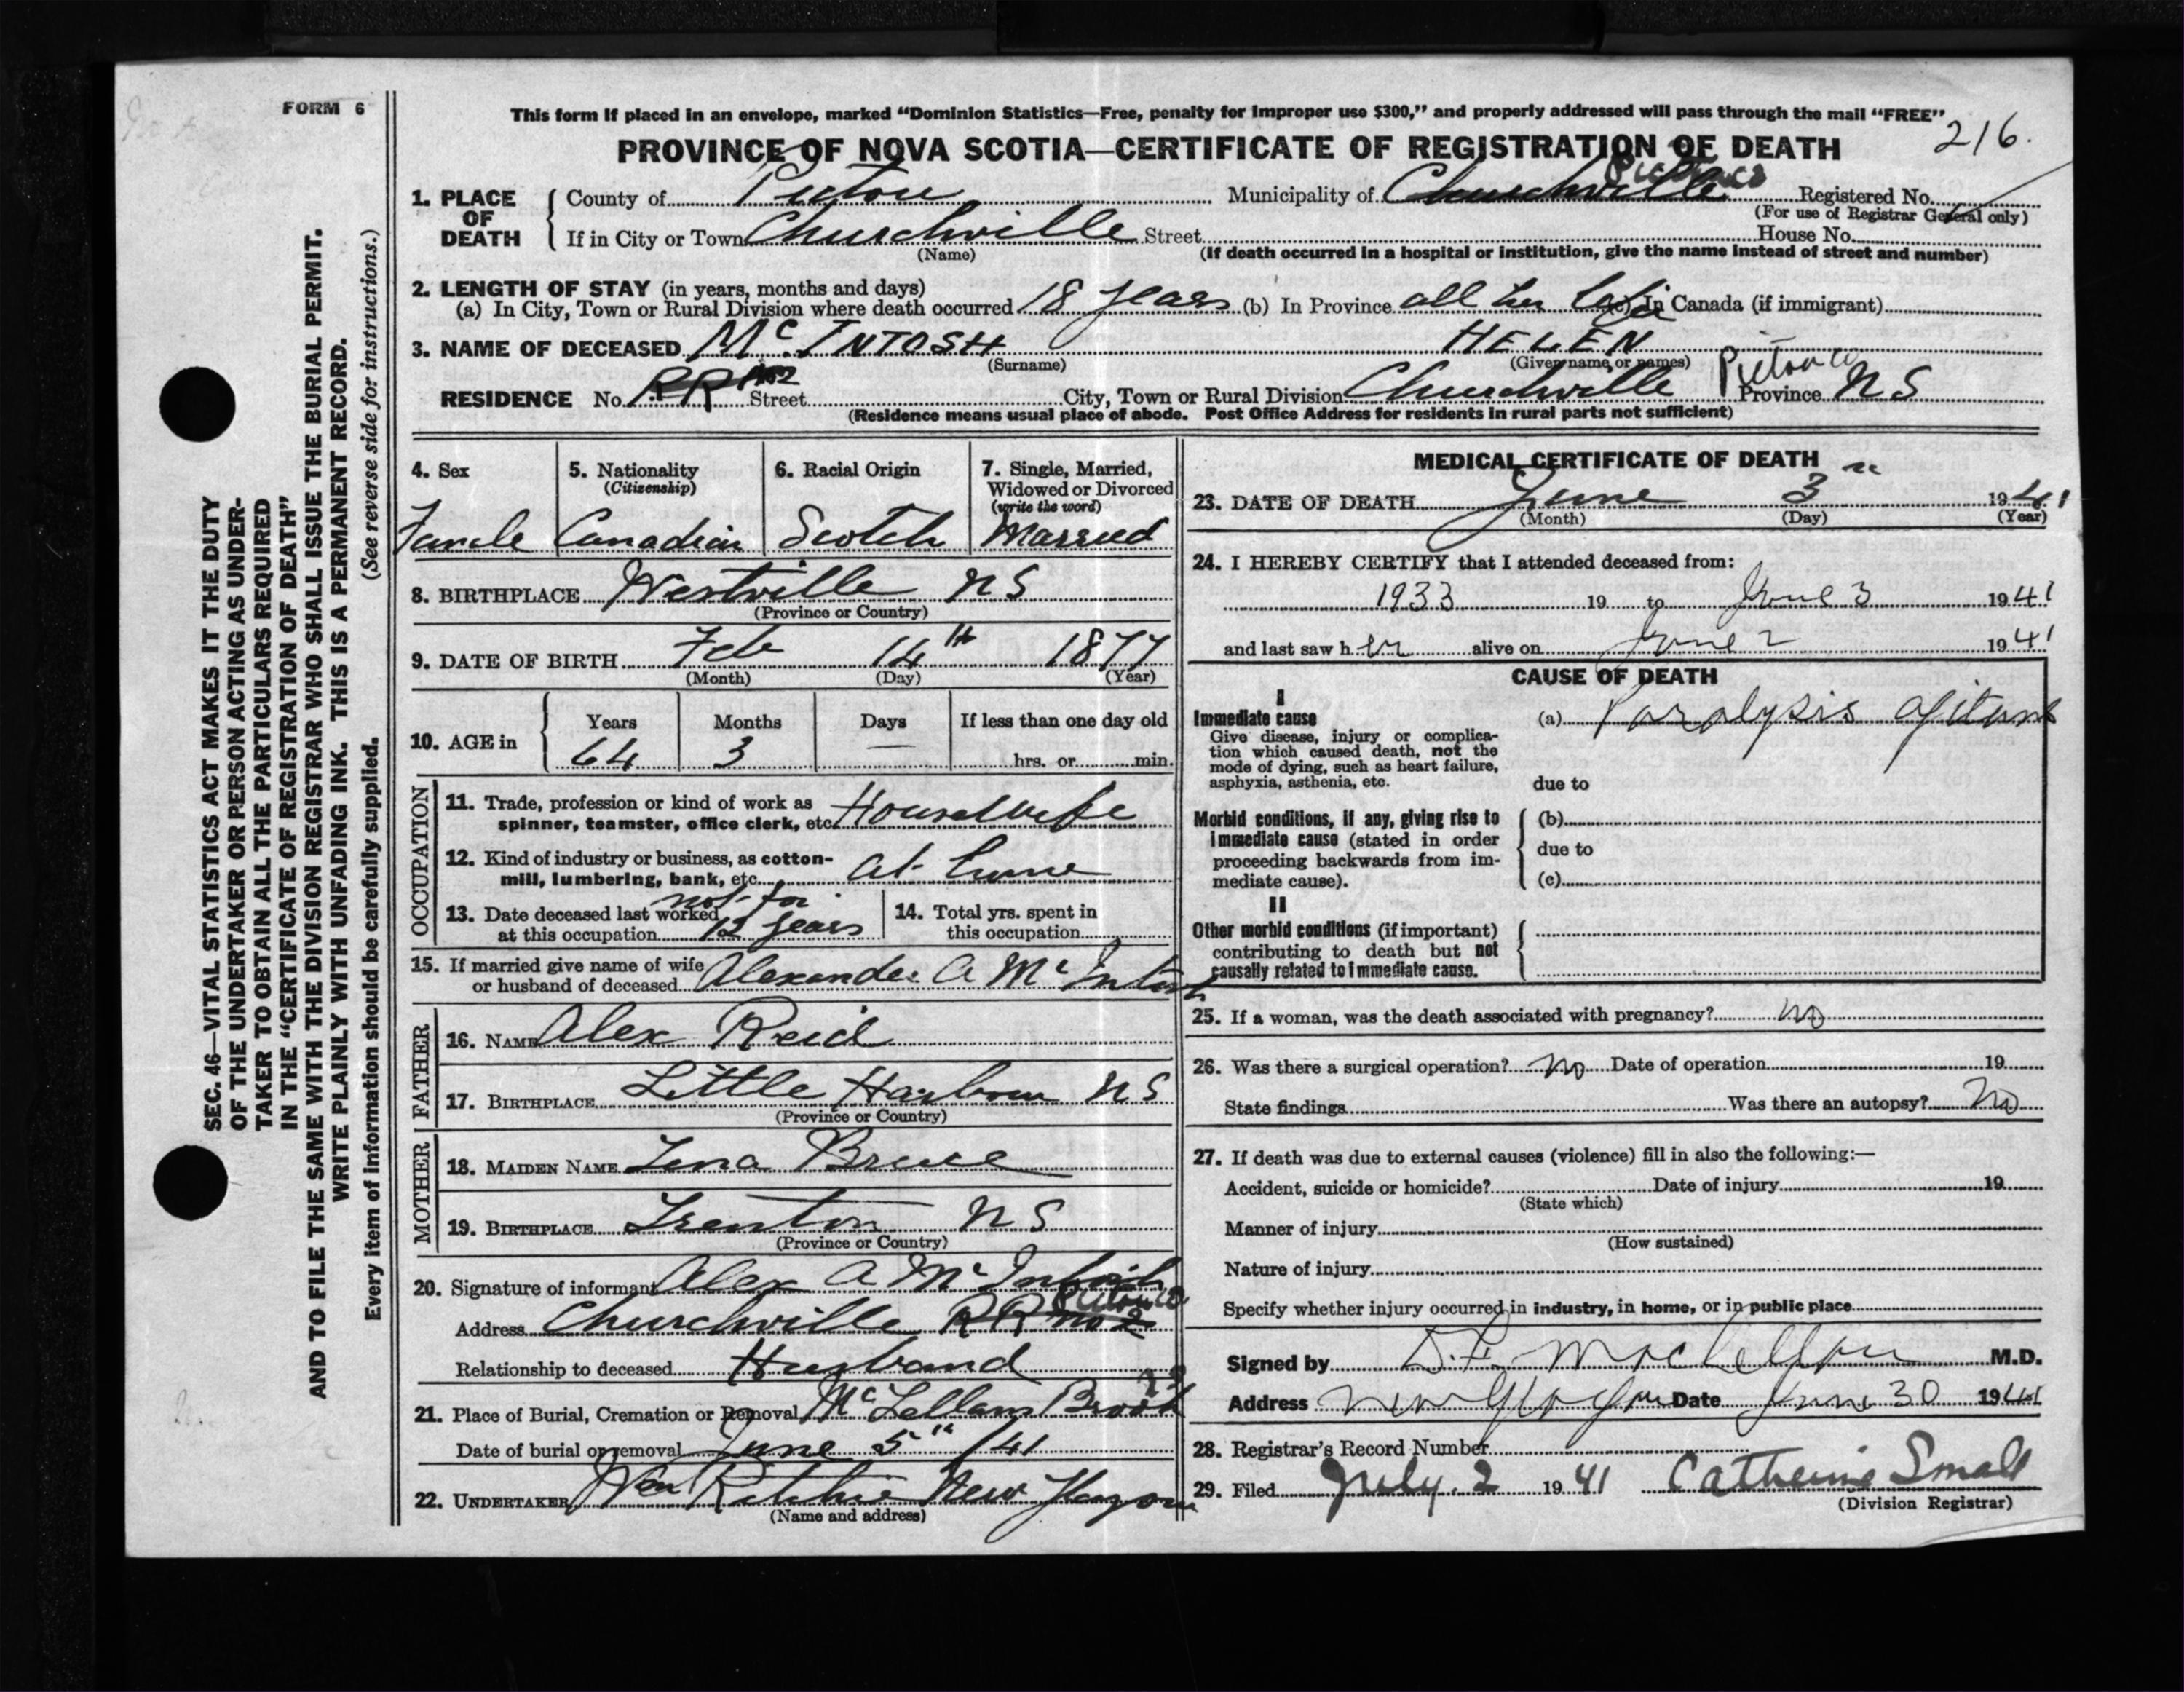 FORM 6
This form if placed in an envelope, marked “Dominion Statistics—Free, penalty for improper use $300,” and properly addressed will pass through the mail “FREE”
216.
PROVINCE OF NOVA SCOTIA—CERTIFICATE OF REGISTRATION OF DEATH
1. PLACE OF DEATH
County of Pictou Municipality of Churchville Pictou Co Registered No.
(For use of Registrar General only)
If in City or Town Churchville Street House No.
(Name) (If death occurred in a hospital or institution, give the name instead of street and number)
2. LENGTH OF STAY (in years, months and days)
(a) In City, Town or Rural Division where death occurred 18 years (b) In Province all her life (c) In Canada (if immigrant)
3. NAME OF DECEASED McINTOSH HELEN
(Surname) (Given name or names)
RESIDENCE No. RR No2 Street City, Town or Rural Division Churchville Pictou Co Province NS
(Residence means usual place of abode. Post Office Address for residents in rural parts not sufficient)
4. Sex
Female
5. Nationality
(Citizenship)
Canadian
6. Racial Origin
Scotch
7. Single, Married,
Widowed or Divorced
(write the word)
Married
8. BIRTHPLACE Westville NS
(Province or Country)
9. DATE OF BIRTH Feb 14th 1877
(Month) (Day) (Year)
10. AGE in
Years Months Days If less than one day old
64 3 — hrs. or min.
OCCUPATION
11. Trade, profession or kind of work as
spinner, teamster, office clerk, etc. Housewife
12. Kind of industry or business, as cotton-
mill, lumbering, bank, etc. at home
13. Date deceased last worked not for
at this occupation 12 years
14. Total yrs. spent in
this occupation
15. If married give name of wife
or husband of deceased Alexander A McIntosh
FATHER
16. NAME Alex Reid
17. BIRTHPLACE Little Harbour NS
(Province or Country)
MOTHER
18. MAIDEN NAME Lena Bruce
19. BIRTHPLACE Trenton NS
(Province or Country)
20. Signature of informant Alex A McIntosh
Address Churchville RR No 2 Pictou Co
Relationship to deceased Husband
21. Place of Burial, Cremation or Removal McLellans Brook
Date of burial or removal June 5th /41
22. UNDERTAKER Wm Ritchie New Glasgow
(Name and address)
MEDICAL CERTIFICATE OF DEATH
23. DATE OF DEATH June 3 1941
(Month) (Day) (Year)
24. I HEREBY CERTIFY that I attended deceased from:
1933 19 to June 3 1941
and last saw her alive on June 2 1941
CAUSE OF DEATH
I
Immediate cause
Give disease, injury or complica-
tion which caused death, not the
mode of dying, such as heart failure,
asphyxia, asthenia, etc.
(a) Paralysis agitans
due to
Morbid conditions, if any, giving rise to
immediate cause (stated in order
proceeding backwards from im-
mediate cause).
(b)
due to
(c)
II
Other morbid conditions (if important)
contributing to death but not
causally related to immediate cause.
25. If a woman, was the death associated with pregnancy? no
26. Was there a surgical operation? No Date of operation 19
State findings Was there an autopsy? No
27. If death was due to external causes (violence) fill in also the following:—
Accident, suicide or homicide? Date of injury 19
(State which)
Manner of injury
(How sustained)
Nature of injury
Specify whether injury occurred in industry, in home, or in public place
Signed by D.F. MacLellan M.D.
Address New Glasgow Date June 30 1941
28. Registrar’s Record Number
29. Filed July. 2 1941 Catherine Small
(Division Registrar)
SEC. 46—VITAL STATISTICS ACT MAKES IT THE DUTY
OF THE UNDERTAKER OR PERSON ACTING AS UNDER-
TAKER TO OBTAIN ALL THE PARTICULARS REQUIRED
IN THE “CERTIFICATE OF REGISTRATION OF DEATH”
AND TO FILE THE SAME WITH THE DIVISION REGISTRAR WHO SHALL ISSUE THE BURIAL PERMIT.
WRITE PLAINLY WITH UNFADING INK. THIS IS A PERMANENT RECORD.
Every item of information should be carefully supplied. (See reverse side for instructions.)